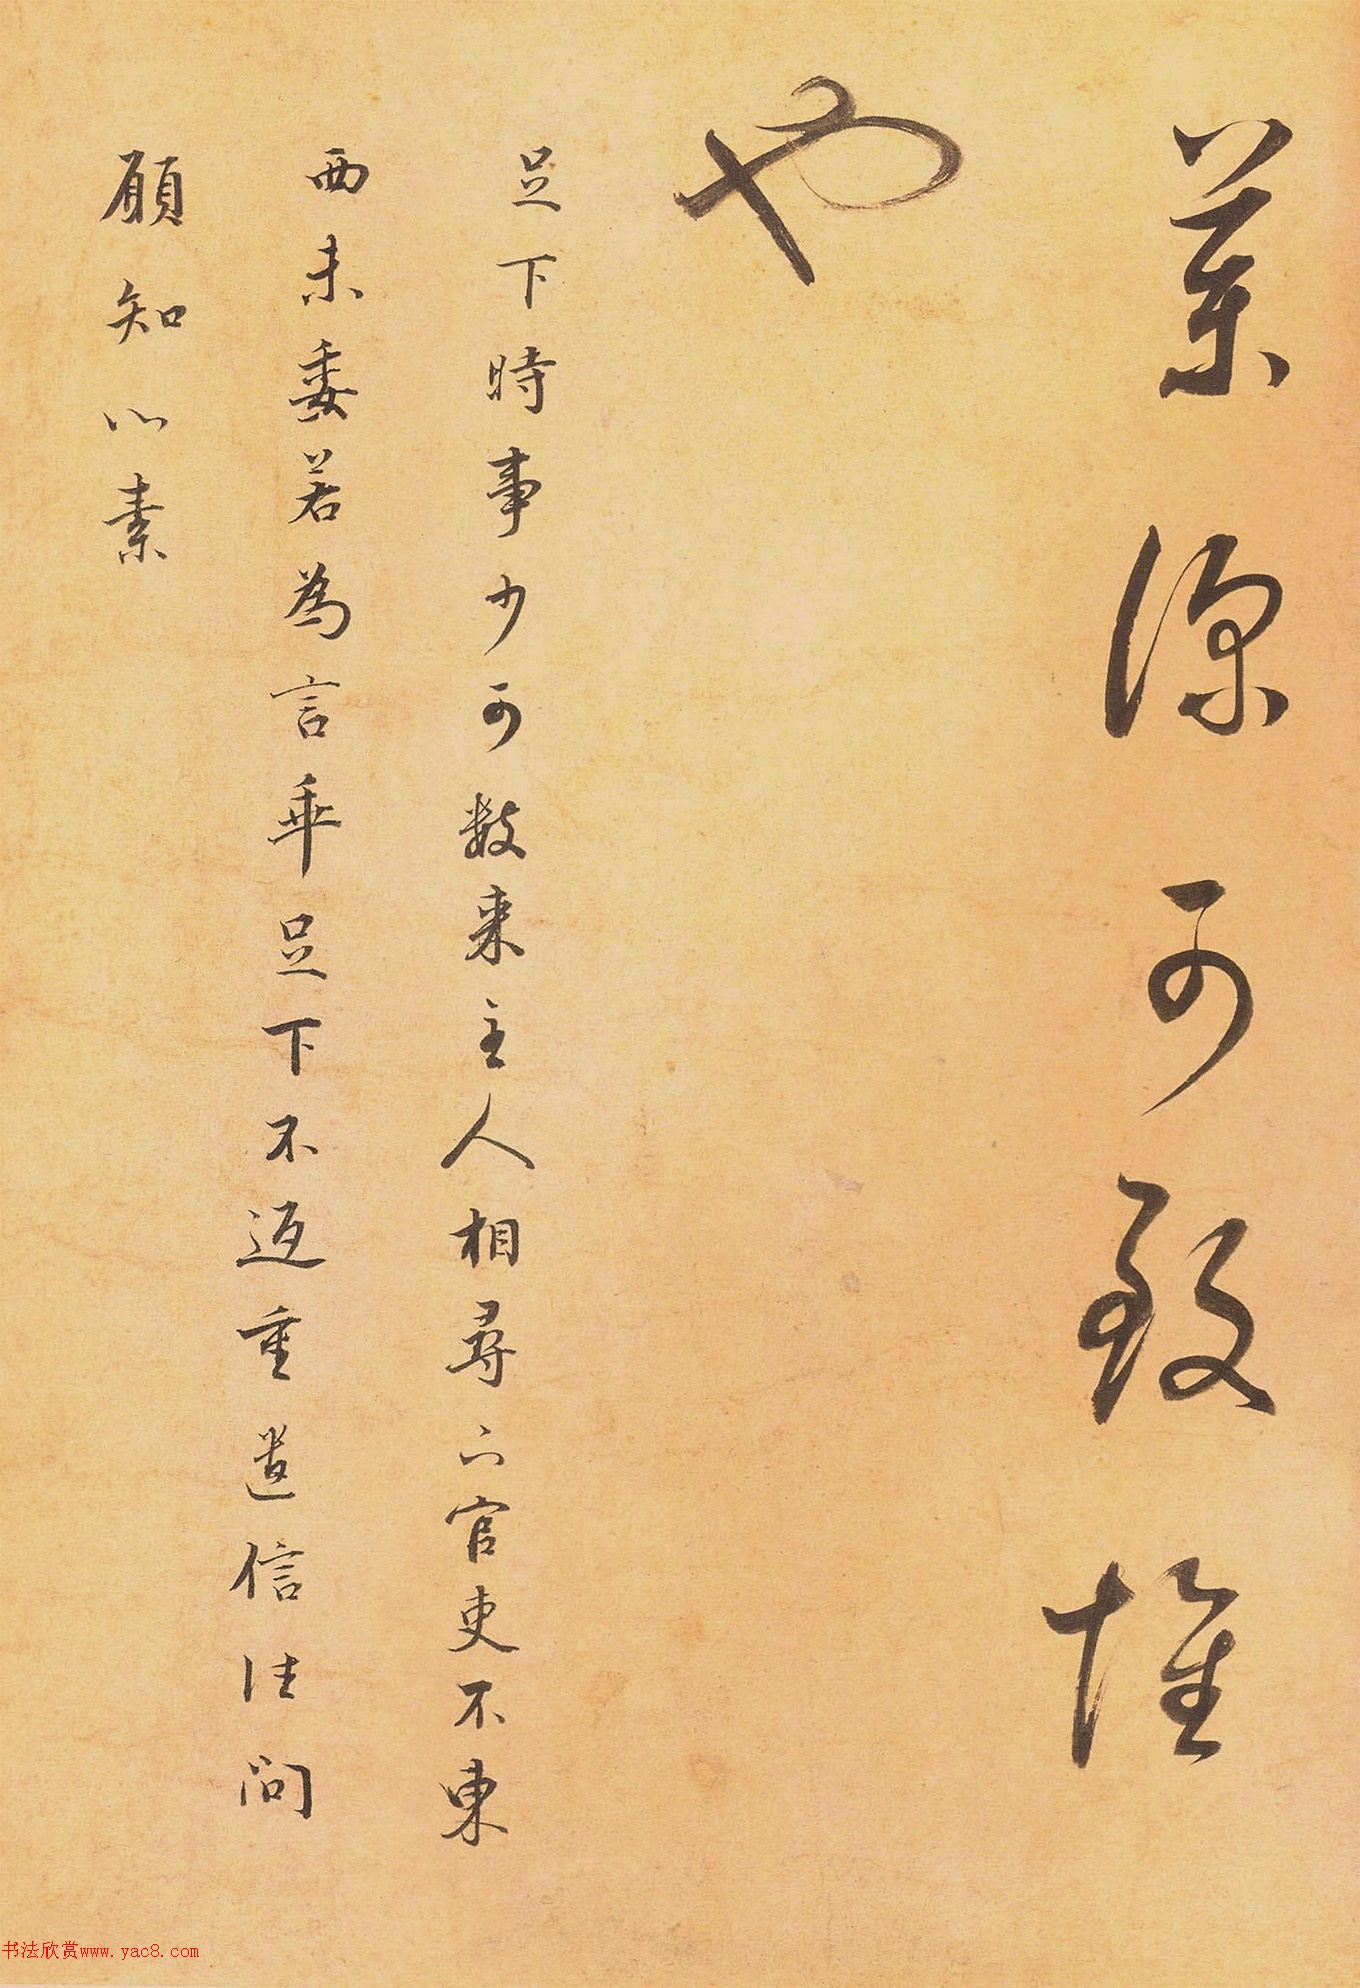 深可致惟
也
足下時事少可數來主人相尋下官吏不東
西未委若為言乖足下不返重遣信往問
願知心素
书法欣赏www.yac8.com